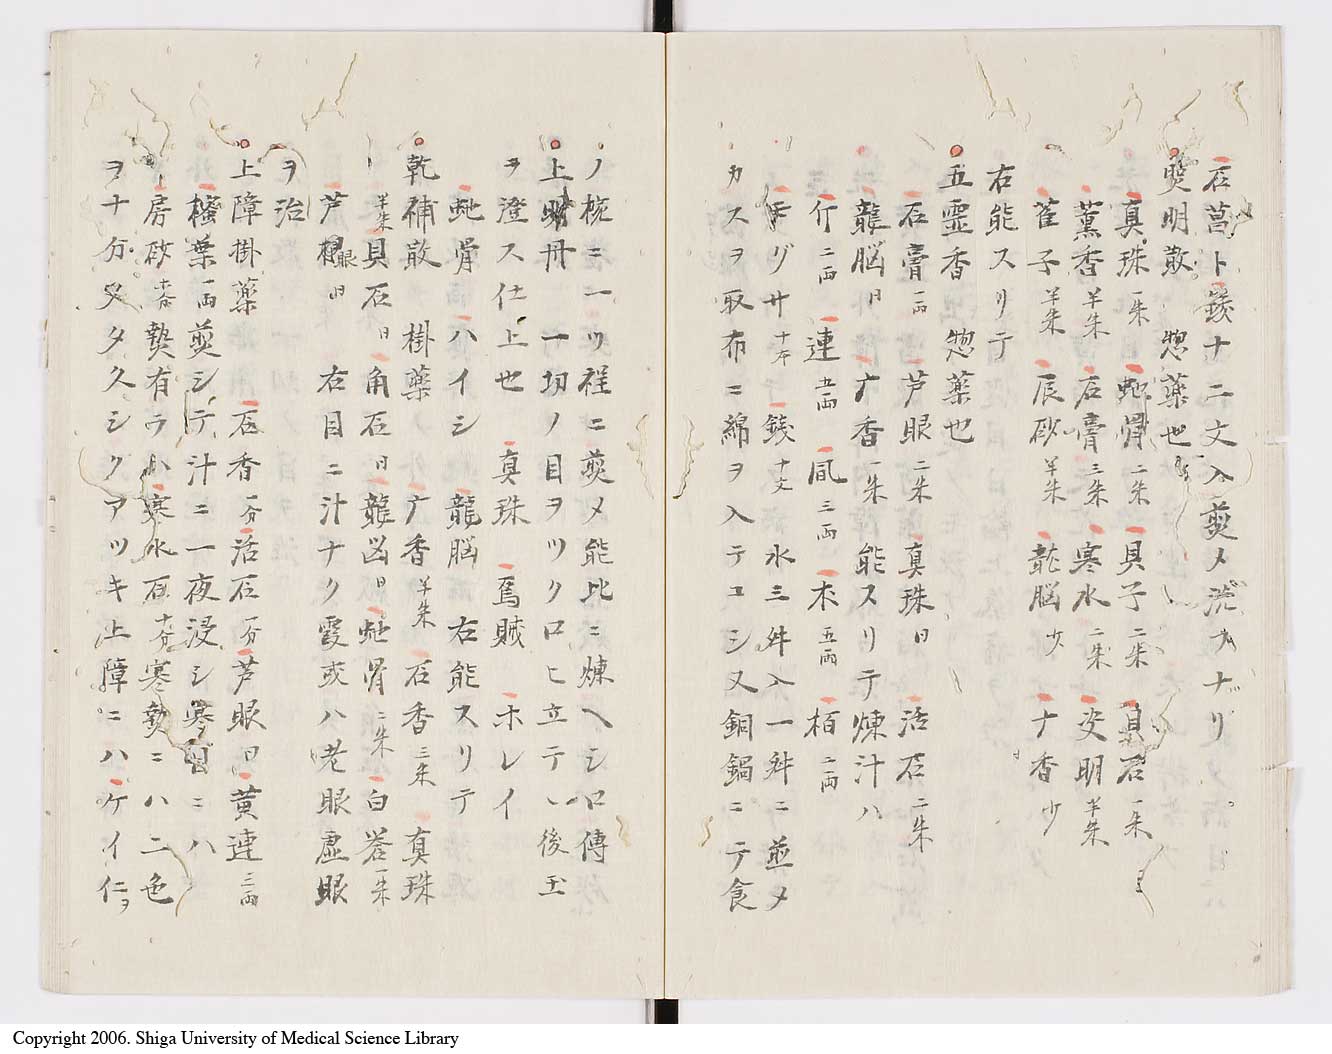 石菖ト錢ナ二文入煎メ洗フナリ
煛明散 惣薬也
真珠一朱 虵骨二朱 貝子二朱 貝石一朱
薫香半朱 石膏三朱 寒水二朱 支明半朱
雀子半朱 辰砂半朱 龍脳少 ナ香少
右能スリテ
五霊香 惣薬也
石膏一両 芦眼二朱 真珠日 活石二朱
龍脳日 广香一朱 能スリテ煉汁ハ
介二両 連五両 凬三両 木五両 栢二両
サ十本 錢十文 水三舛入一舛ニ煎メ
カスヲ取布ニ綿ヲ入テコシ又銅鍋ニテ食
ノ椀ニ一ツ程ニ煎メ能比ニ煉ヘシ口傳
上明丹 一切ノ目ヲツクロヒ立テ、後玉
ヲ澄ス仕上也 真珠 焉賊 ホレイ
虵骨 ハイシ 龍脳 右能スリテ
乾補散 掛薬 广香半朱 石香三朱 真珠
半朱 貝石日 角石日 龍凶日 虵骨二朱 白岩一朱
芦眼日 右目ニ汁ナク霞或ハ老眼虚眼
ヲ治
上障掛薬 石香一分 活石一分 芦眼日 黄連三両
葉一両煎シテ汁ニ一夜浸シ寒日ニハ
房砂十分 熱有ラハ寒水石十分 寒熱ニハ二色
ヲナ分又タ久シクアツキ上障ニハケイ仁ヲ
Copyright 2006. Shiga University of Medical Science Library